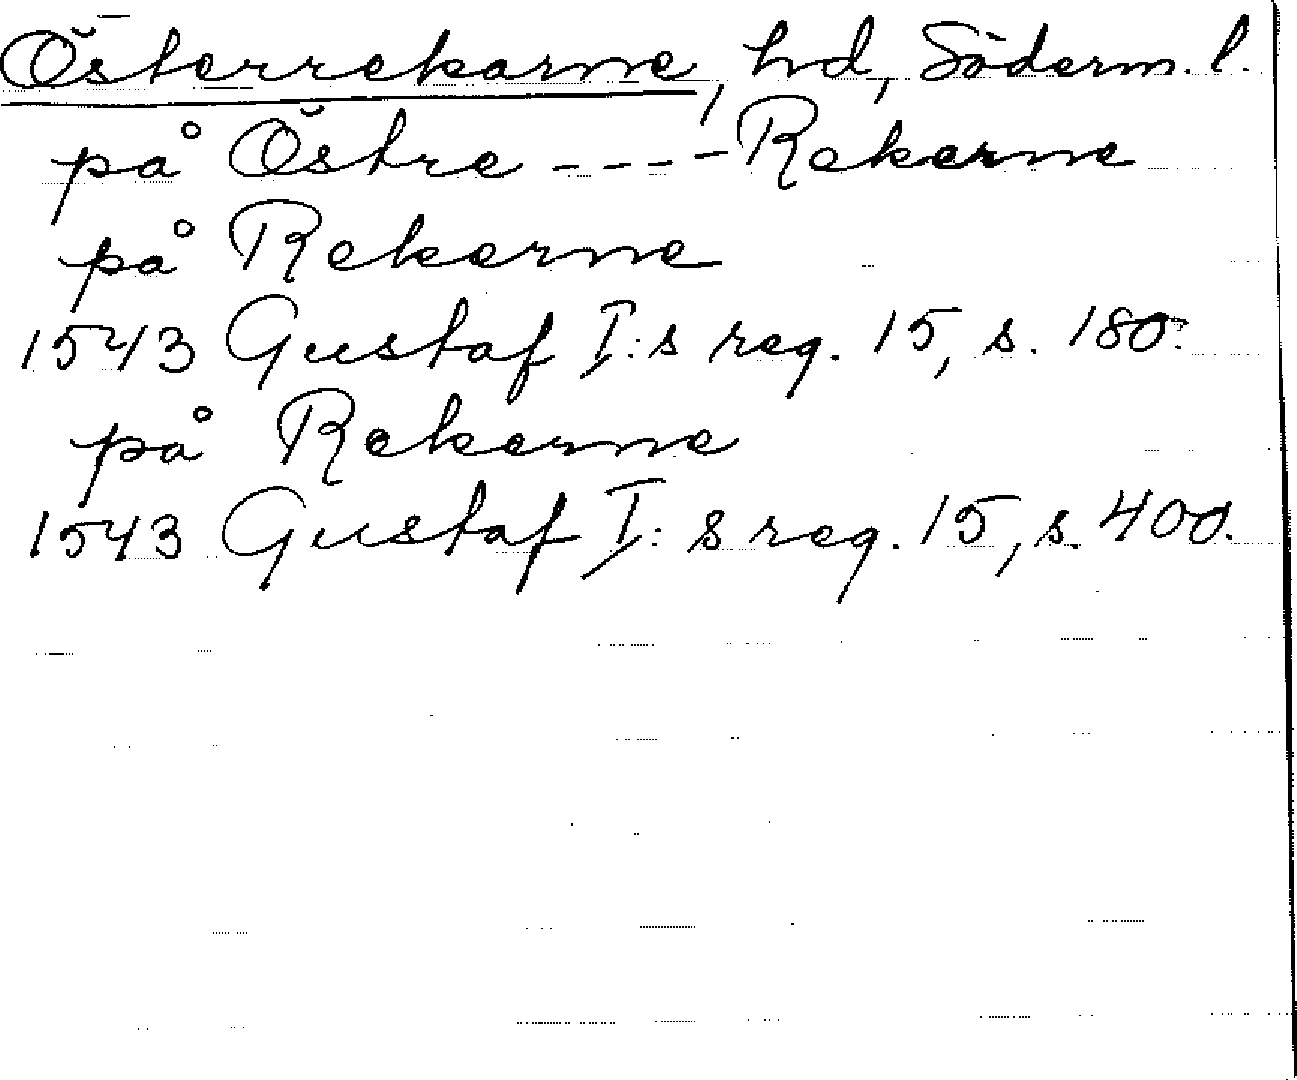 Österrekarne, hd, Söderm. l.
på Östre - - - - Rekerne
på Rekerne
1543 Gustaf I:s reg. 15, s. 180.
på Rekerne
1543 Gustaf I:s reg. 15, s. 400.